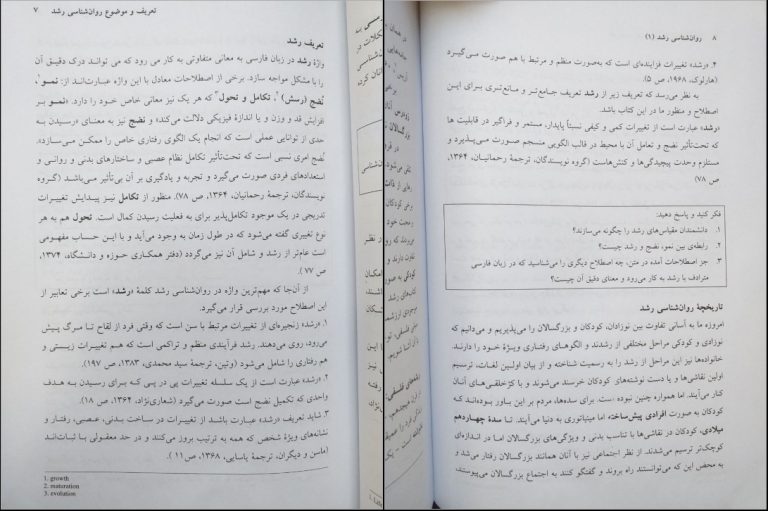 تعریف و موضوع روان‌شناسی رشد ۷
تعریف رشد
واژهٔ رشد در زبان فارسی به معانی متفاوتی به کار می رود که می تواند درک دقیق آن
را با مشکل مواجه سازد. برخی از اصطلاحات معادل با این واژه عبارت‌اند از: نمو۱،
نُضج (رسش)۲، تکامل و تحول۳ که هر یک نیز معانی خاص خود را دارد. «نمو بر
افزایش قد و وزن و یا اندازهٔ فیزیکی دلالت می‌کند» و نضج نیز به معنای «رسیدن به
حدی از توانایی عملی است که انجام یک الگوی رفتاری خاص را ممکن می‌سازد».
نُضج امری نسبی است که تحت‌تأثیر تکامل نظام عصبی و ساختارهای بدنی و روانی و
استعدادهای فردی صورت می‌گیرد و تجربه و یادگیری بر آن بی‌تأثیر می‌باشد (گروه
نویسندگان، ترجمهٔ رحمانیان، ۱۳۶۴، ص ۷۸). منظور از تکامل نیز پیدایش تغییرات
تدریجی در یک موجود تکامل‌پذیر برای به فعلیت رسیدن کمال است. تحول هم به هر
نوع تغییری گفته می‌شود که در طول زمان به وجود می‌آید و با این حساب مفهومی
است عام‌تر از رشد و شامل آن نیز می‌گردد (دفتر همکاری حوزه و دانشگاه، ۱۳۷۴،
ص ۷۷).
از آن‌جا که مهم‌ترین واژه در روان‌شناسی رشد کلمهٔ «رشد» است برخی تعابیر از
این اصطلاح مورد بررسی قرار می‌گیرد.
۱. «رشد» زنجیره‌ای از تغییرات مرتبط با سن است که وقتی فرد از لقاح تا مرگ پیش
می‌رود، روی می‌دهند. رشد فرآیندی منظم و تراکمی است که هم تغییرات زیستی و
هم رفتاری را شامل می‌شود (وتین، ترجمهٔ سید محمدی، ۱۳۸۳، ص ۱۹۷).
۲. «رشد» عبارت است از یک سلسله تغییرات پی در پی که برای رسیدن به هدف
واحدی که تکمیل نضج است صورت می‌گیرد (شعاری‌نژاد، ۱۳۶۴، ص ۱۸).
۳. شاید تعریف «رشد» عبارت باشد از تغییرات در ساخت بدنی، عصبی، رفتار و
نشانه‌های ویژهٔ شخص که همه به ترتیب بروز می‌کنند و در حد معقولی با ثبات‌اند
(ماسن و دیگران، ترجمهٔ یاسایی، ۱۳۶۸، ص۱۱).
1. growth
2. maturation
3. evolution
۸ روان‌شناسی رشد (۱)
۴. «رشد» تغییرات فزاینده‌ای است که به‌صورت منظم و مرتبط با هم صورت می‌گیرد
(هارلوک، ۱۹۶۸، ص ۵).
به نظر می‌رسد که تعریف زیر از رشد تعریف جامع‌تر و مانع‌تری برای این
اصطلاح و منظور ما در این کتاب باشد.
«رشد» عبارت است از تغییرات کمی و کیفی نسبتاً پایدار، مستمر و فراگیر در قابلیت ها
که تحت‌تأثیر نضج و تعامل آن با محیط در قالب الگویی منسجم صورت می‌پذیرد و
مستلزم وحدت پیچیدگی‌ها و کنش‌هاست (گروه نویسندگان، ترجمهٔ رحمانیان، ۱۳۶۴،
ص ۷۸)
فکر کنید و پاسخ دهید:
۱. دانشمندان مقیاس‌های رشد را چگونه می‌سازند؟
۲. رابطه‌ی بین نمو، نضج و رشد چیست؟
۳. جز اصطلاحات آمده در متن، چه اصطلاح دیگری را می‌شناسید که در زبان فارسی
مترادف با رشد به کار می‌رود و معنای دقیق آن چیست؟
تاریخچهٔ روان‌شناسی رشد
امروزه ما به آسانی تفاوت بین نوزادان، کودکان و بزرگسالان را می‌پذیریم و می‌دانیم که
نوزادی و کودکی مراحل مختلفی از رشدند و الگوهای رفتاری ویژهٔ خود را دارند.
خانواده‌ها نیز این مراحل از رشد را به رسمیت شناخته و از بیان اولین لغات، ترسیم
اولین نقاشی‌ها و یا دست نوشته‌های کودکان خرسند می‌شوند و با کژخلقی‌های آنان
کنار می‌آیند. اما همواره چنین نبوده است. برای سده‌ها، مردم بر این باور بوده‌اند کـه
کودکان به صورت افرادی پیش‌ساخته، اما مینیاتوری به دنیا می‌آیند. تا سدهٔ چهاردهم
میلادی، کودکان در نقاشی‌ها با تناسب بدنی و ویژگی‌های بزرگسالان اما در اندازه‌ای
کوچک‌تر ترسیم می‌شدند. از نظر اجتماعی نیز با آنان همانند بزرگسالان رفتار می‌شد و
به محض این که می‌توانستند راه بروند و گفتگو کنند به اجتماع بزرگسالان می‌پیوستند،